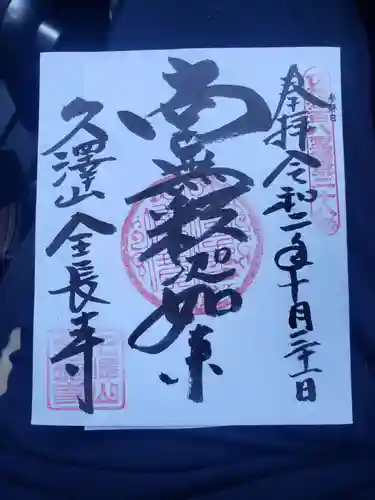 奉拝 令和二年十月二十一日
南無釈迦如来
久澤山 全長寺